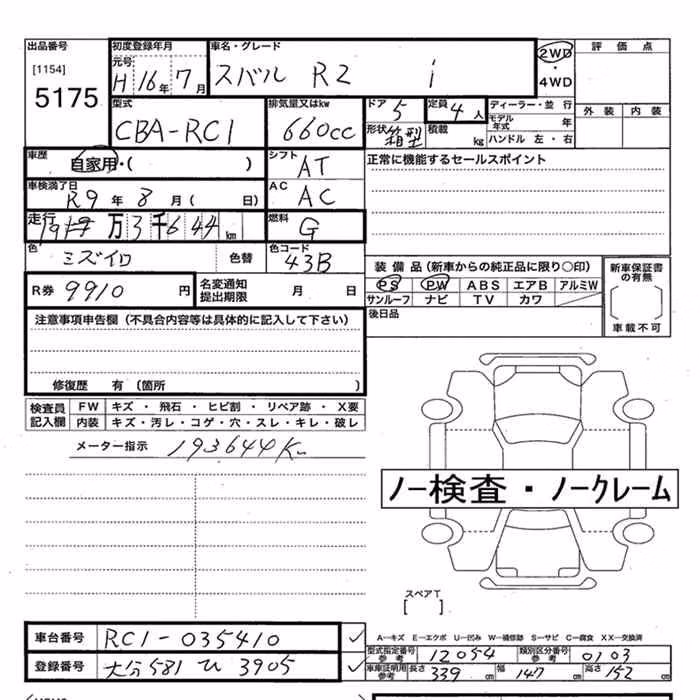 出品番号 初度登録年月 車名・グレード 2WD 評価点
[1154] 元号 H 16年 7月 スバル R2 i ・ 4WD
5175 型式 排気量又はkw ドア 5 定員 4人 ディーラー・並行 外装 内装
CBA-RC1 660cc 形状 箱型 積載 kg モデル年式 年
ハンドル 左・右
車歴 自家用・( ) シフト AT 正常に機能するセールスポイント
車検満了日 R9年 8月( 日) AC AC
走行 19 万 3 千 6 44 km 燃料 G
色 ミズイロ 色替 色コード 43B
装備品(新車からの純正品に限り○印) 新車保証書の有無
R券 9910 円 名変通知提出期限 月 日 PS PW ABS エアB アルミW
サンルーフ ナビ TV カワ
車載不可
注意事項申告欄(不具合内容等は具体的に記入して下さい) 後日品
修復歴 有(箇所 )
検査員記入欄 FW キズ・飛石・ヒビ割・リペア跡・X要
内装 キズ・汚レ・コゲ・穴・スレ・キレ・破レ
メーター指示 193644K
ノー検査・ノークレーム
スペアT
[ ]
A―キズ E―エクボ U―凹み W―補修跡 S―サビ C―腐食 XX―交換済
車台番号 RC1-035410 型式指定番号 参考 12054 類別区分番号 参考 0103
登録番号 大分581 ひ 3905 車庫証明用 参考 長さ 339cm 幅 147cm 高さ 152cm